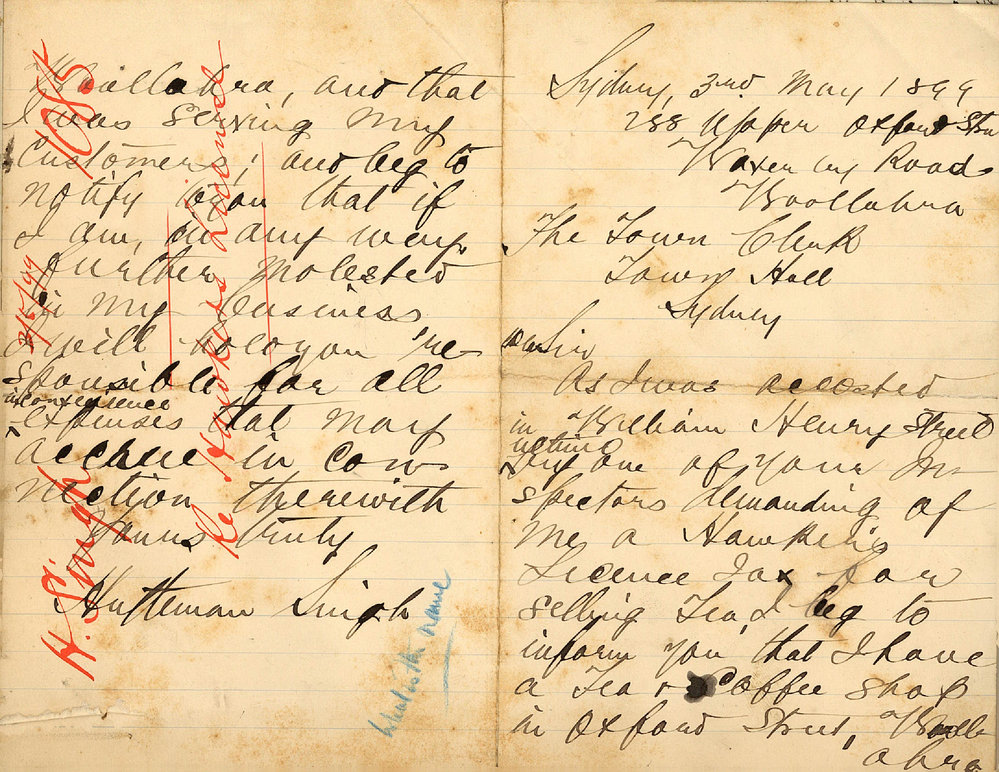 Sydney, 3rd. May 1899
288 Upper Oxford Stree
Waverley Road
Woollahra
The Town Clerk
Town Hall
Sydney
Dear Sir
As I was accosted
in William Henry Street
Ultimo
by one of your In-
spectors demanding of
me a Hawking
Licence Tax for
selling Tea, I beg to
inform you that I have
a Tea & Coffee Shop
in Oxford Street, Wooll
ahra
Woollahra, and that
I was serving my
Customers, and beg to
notify you that if
I am, in any way
further molested
in my business
I will hold you re-
sponsible for all
inconvenience
expenses that may
accrue in con-
nection therewith
Yours truly
Hutteman Singh
H. Singh
3/5/99
1085
Re Hawkers License
What is the name